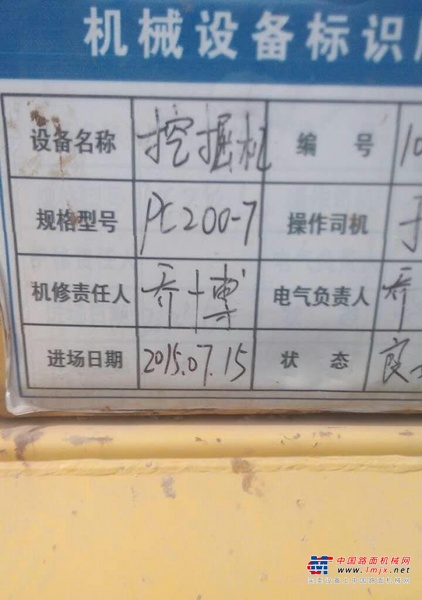 机械设备标识
设备名称 挖掘机 编号 10
规格型号 PC200-7 操作司机
机修责任人 乔博 电气负责人 乔
进场日期 2015.07.15 状态 良
中国路面机械网
www.lmjx.net